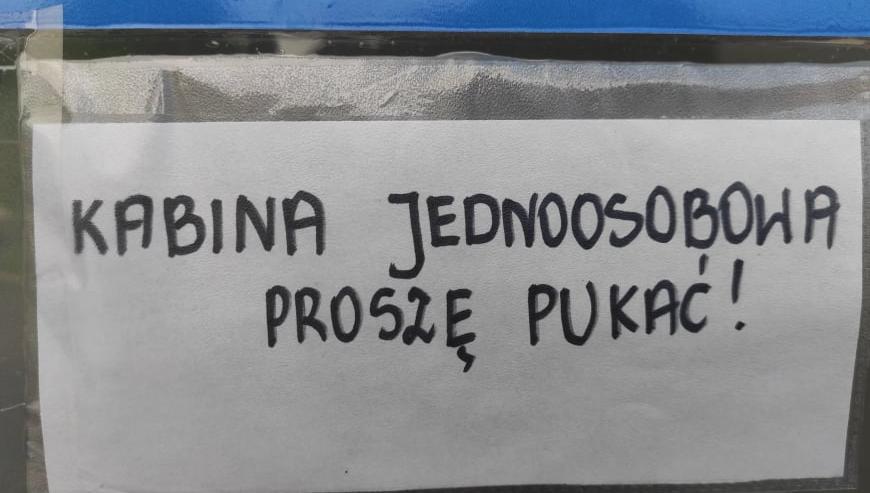 KABINA JEDNOOSOBOWA
PROSZĘ PUKAĆ!